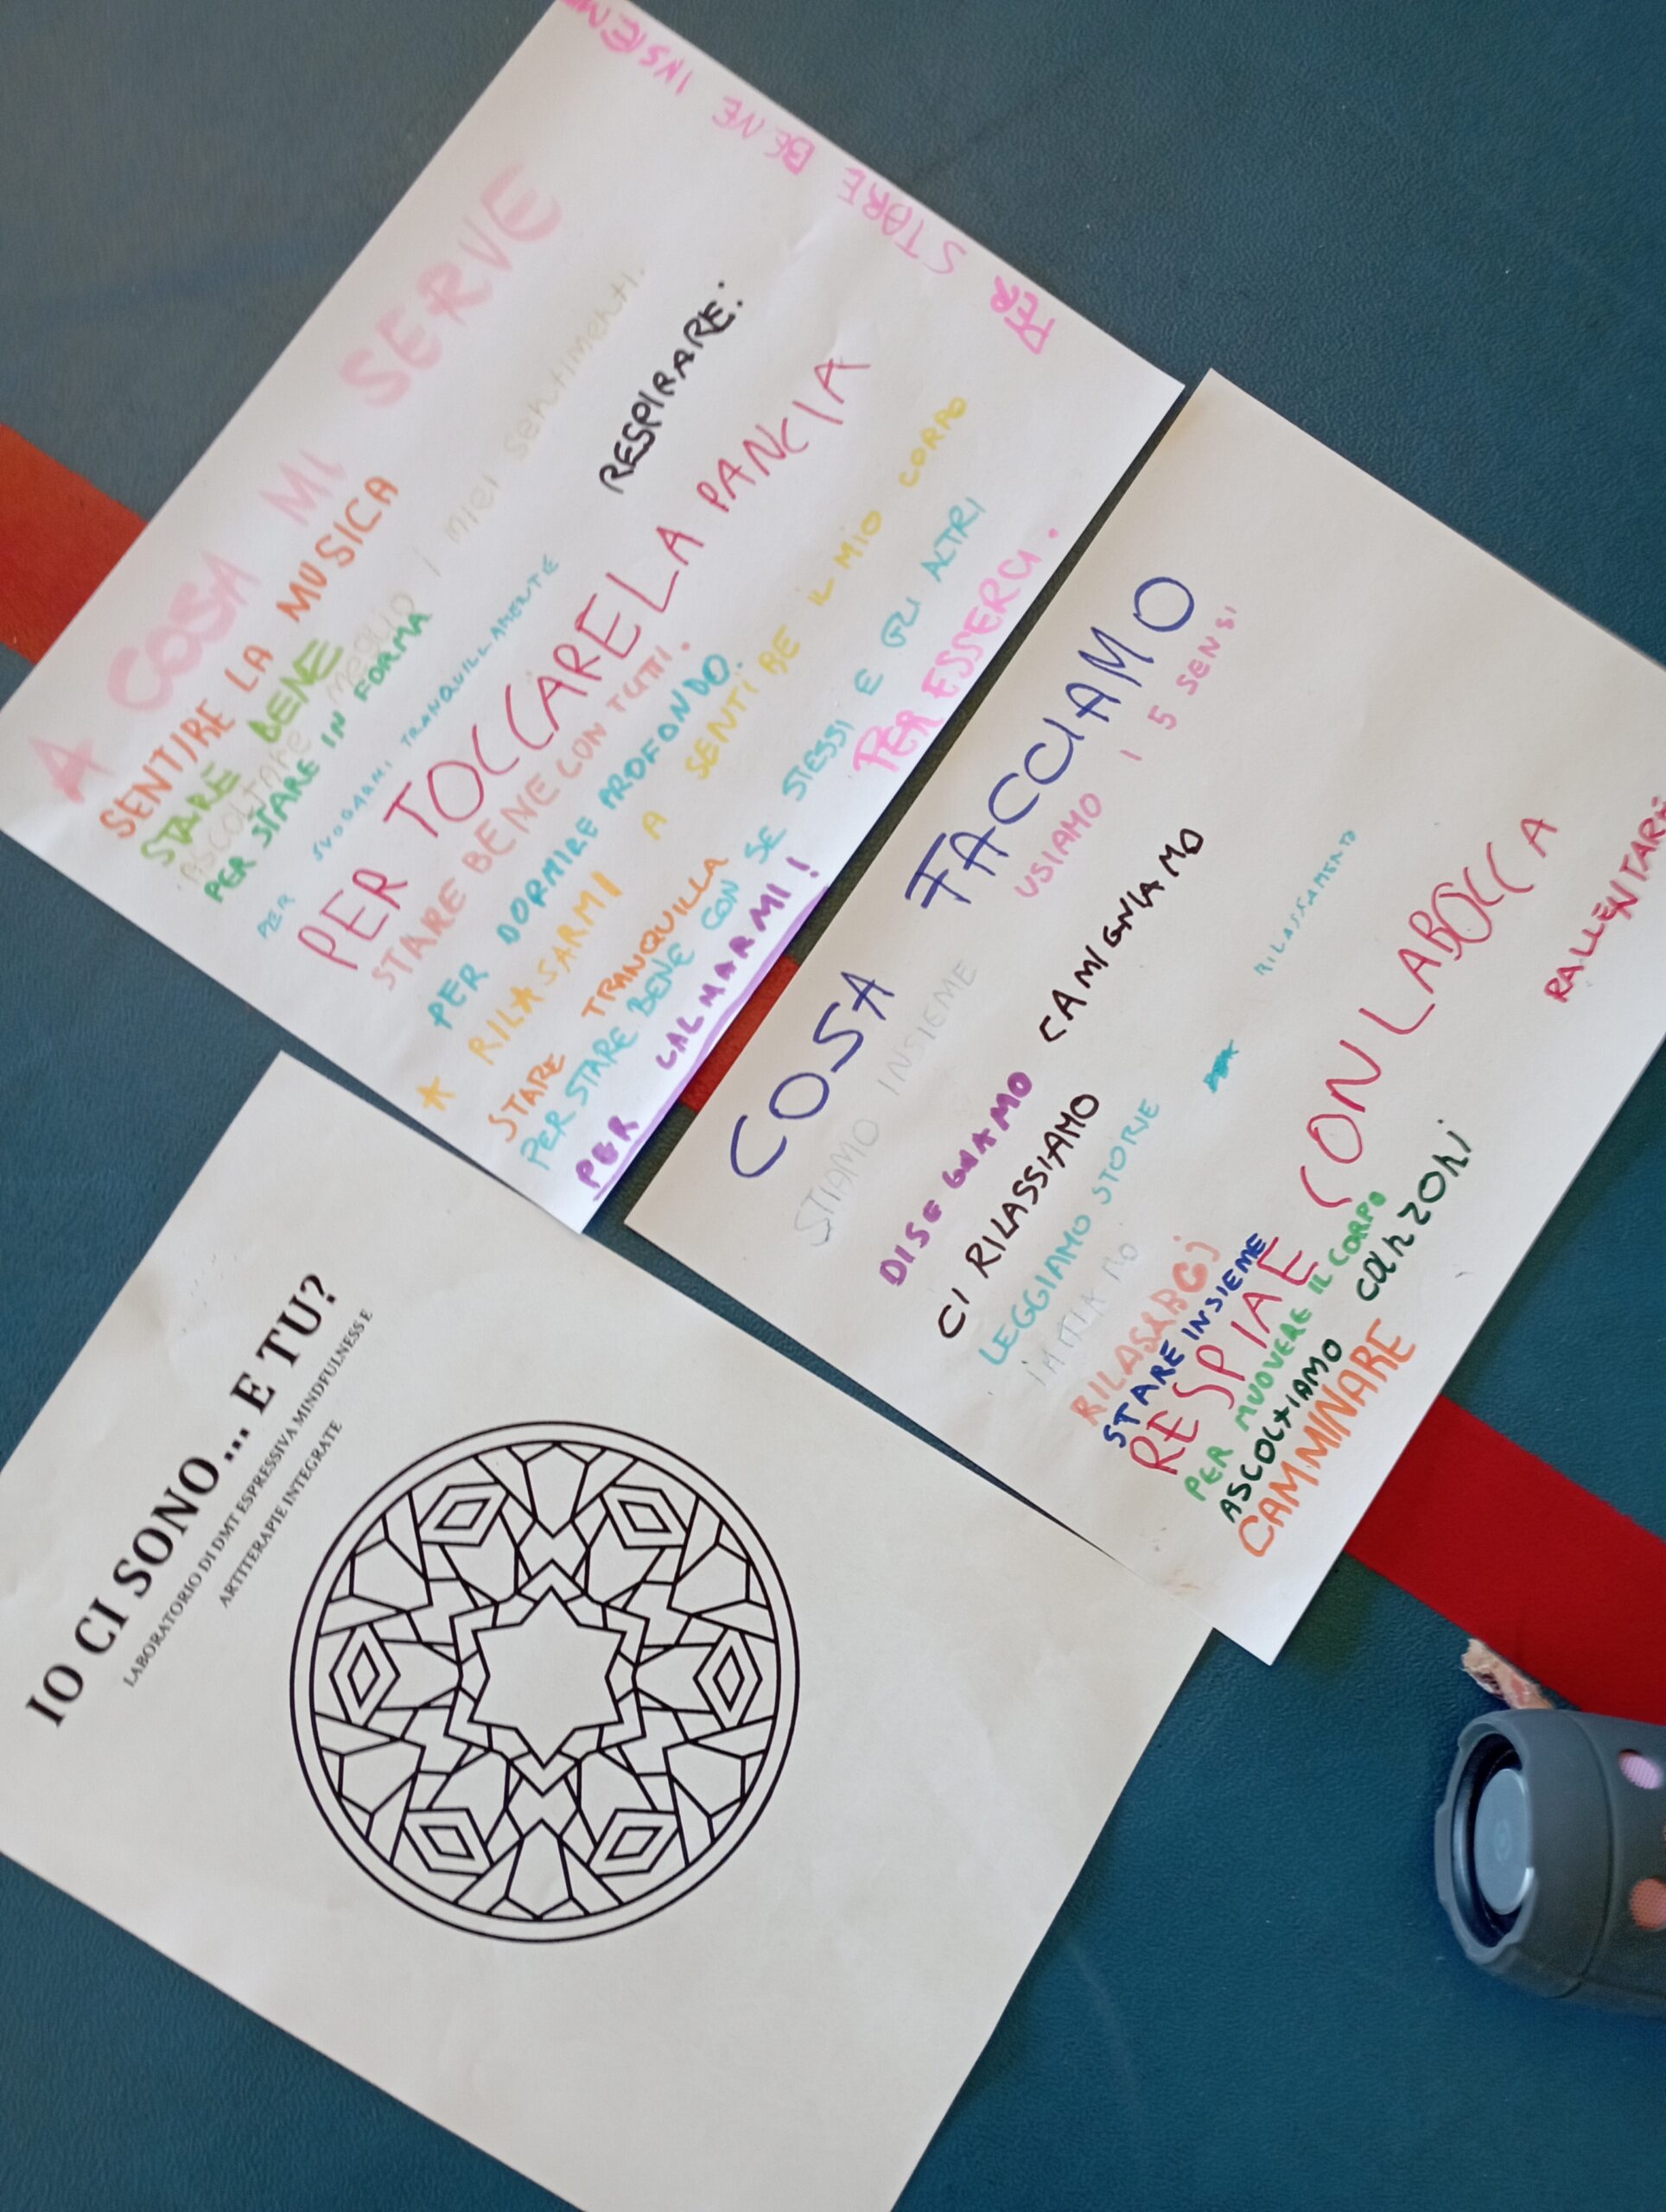 A COSA MI SERVE
SENTIRE LA MUSICA
STARE BENE
ASCOLTARE MEGLIO I MIEI SENTIMENTI.
PER STARE IN FORMA
RESPIRARE:
PER SVOGARMI TRANQUILLAMENTE
PER TOCCARE LA PANCIA
STARE BENE CON TUTTI.
PER DORMIRE PROFONDO.
RILASARMI A SENTIRE IL MIO CORPO
STARE TRANQUILLA
PER STARE BENE CON SE STESSI E GLI ALTRI
PER CALMARMI!
PER ESSERCI.
PER STARE BENE INSIEME
COSA FACCIAMO
STIAMO INSIEME
USIAMO I 5 SENSI
DISEGNAMO
CAMIGNIAMO
CI RILASSIAMO
LEGGIAMO STORIE
RILASSAMENTO
STARE INSIEME
RESPIAE CON LA BOCCA
PER MUOVERE IL CORPO
ASCOLTIAMO CANZONI
CAMMINARE
RALLENTARE
IO CI SONO... E TU?
LABORATORIO DI DMT ESPRESSIVA MINDFULNESS E
ARTITERAPIE INTEGRATE